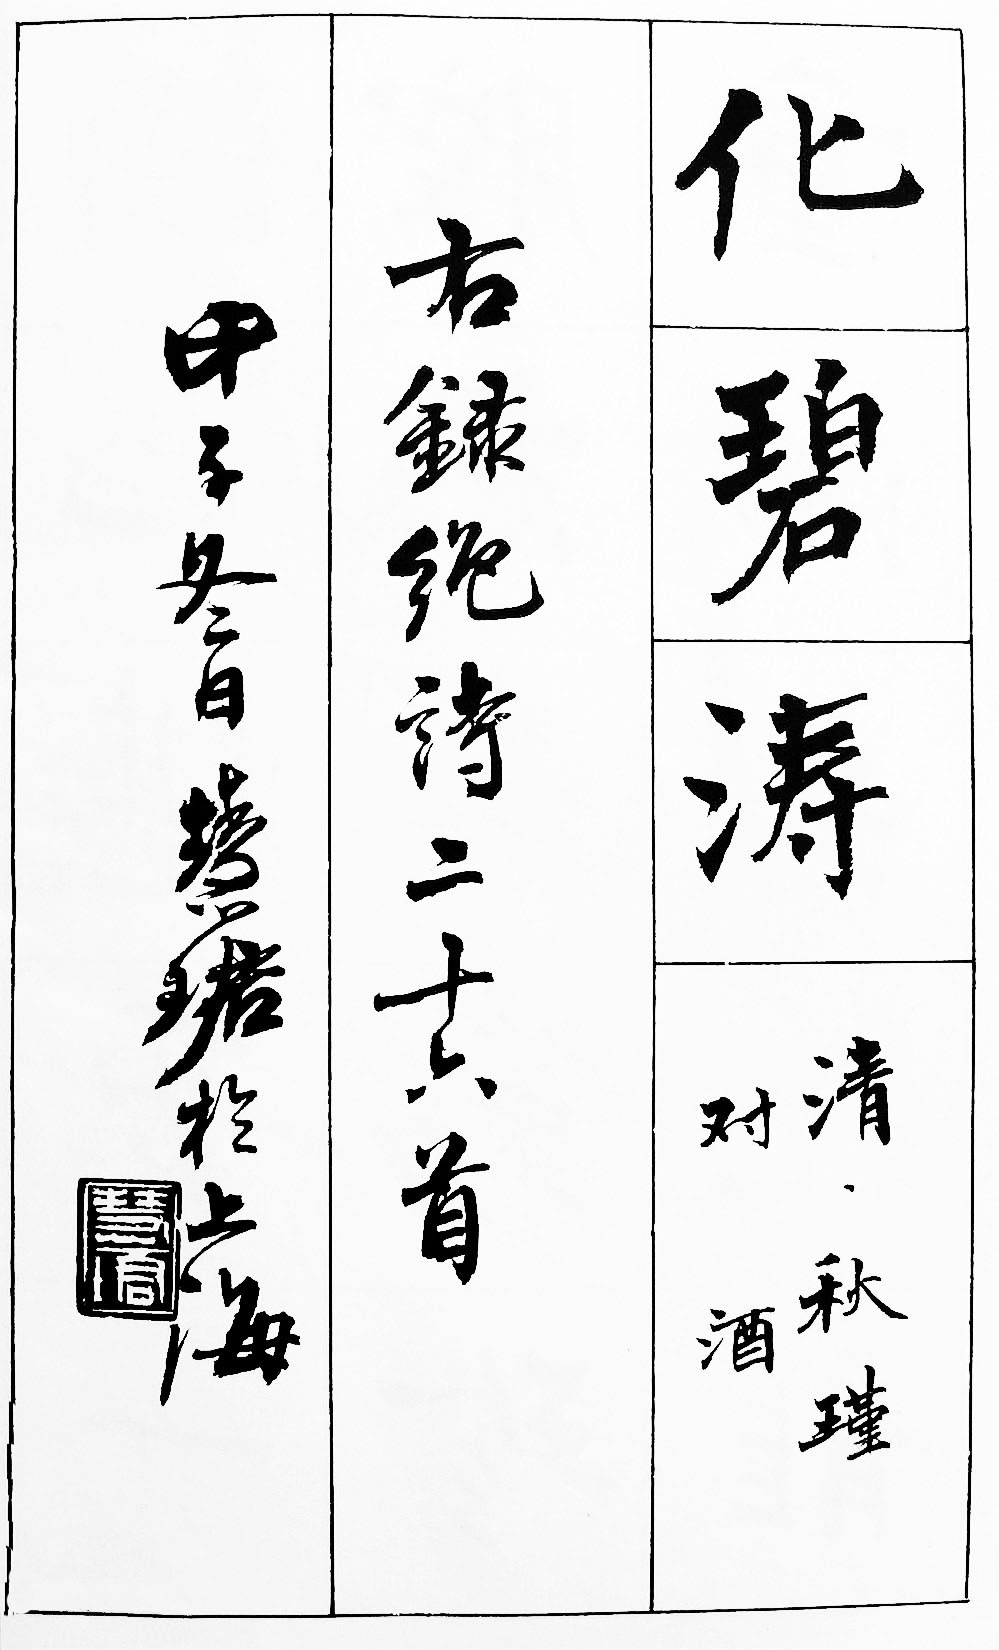 化碧涛
清·秋瑾
对酒
右録绝詩二十六首
甲子冬日慧珺於上海
慧珺